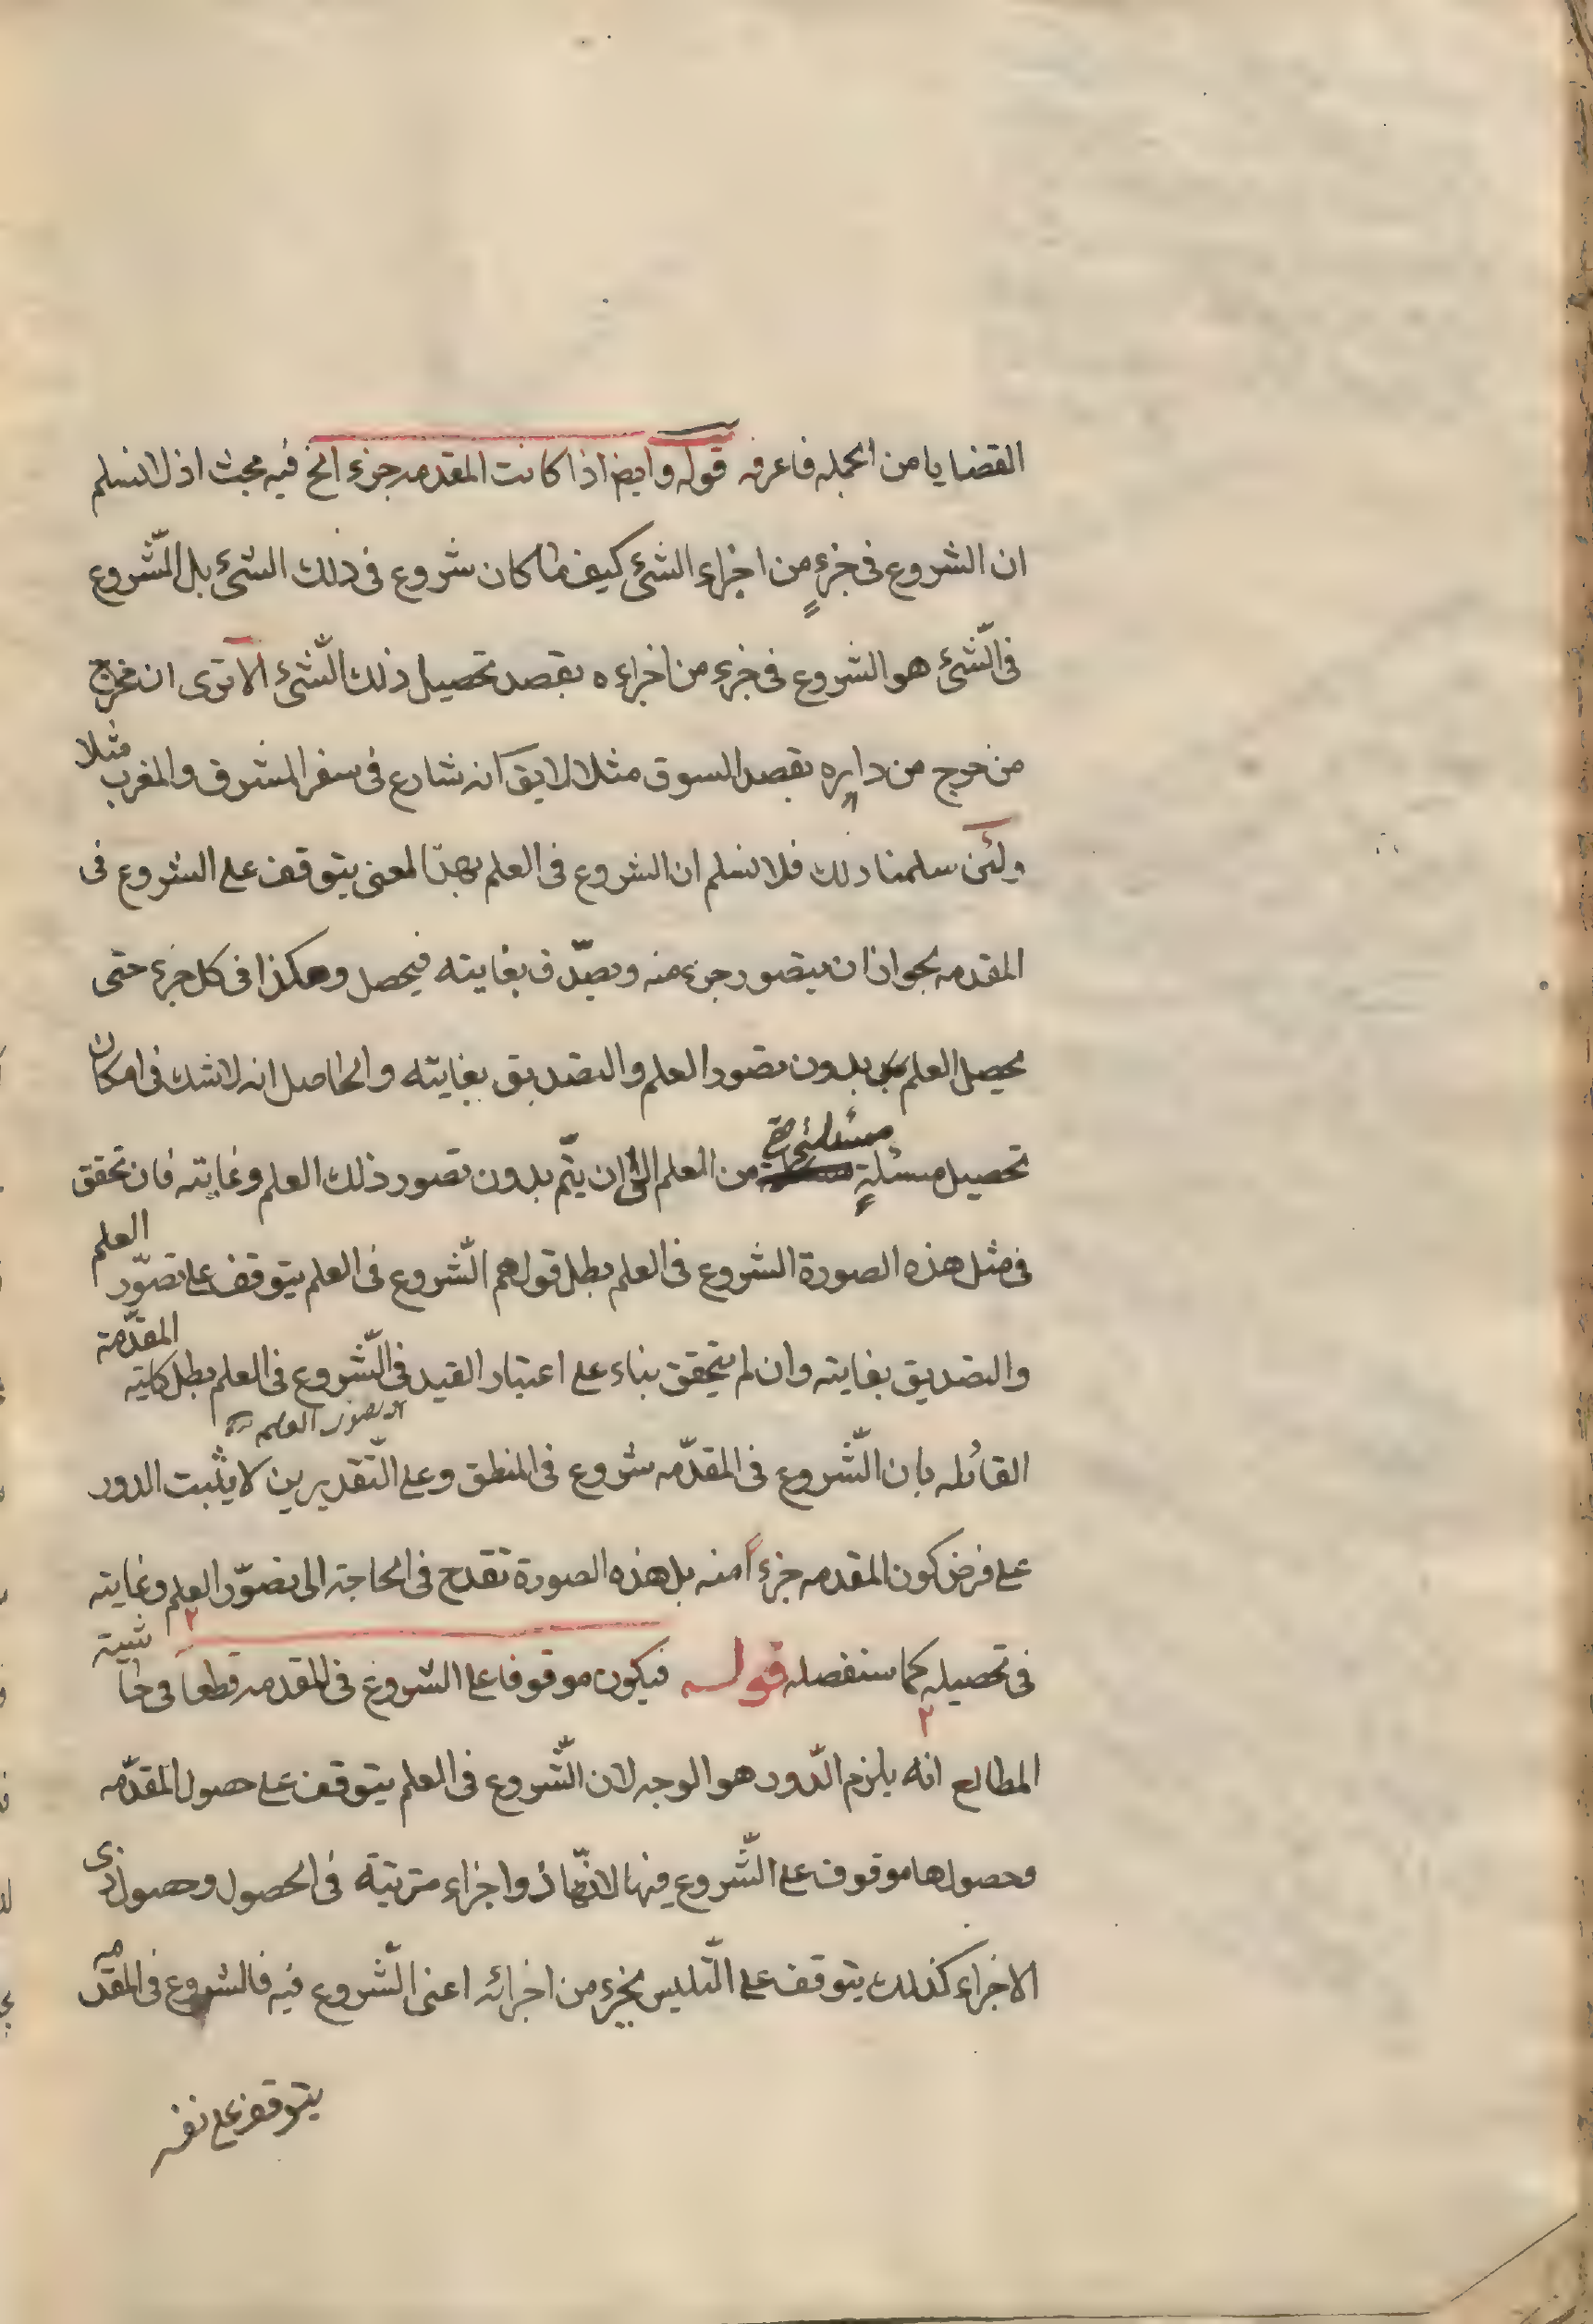 القضايا من الجمله فاعرفه قوله وايض اذا كانت المقدمه جزء الخ فيه بحث اذ لا نسلم
ان الشروع فى جزءٍ من اجزاء الشئ كيف ما كان شروع فى ذلك الشئ بل الشّروع
فى الشّئ هو الشروع فى جزء من اجزاءه بقصد تحصيل ذلك الشّئ الا ترى ان
من خرج من داره بقصد السوق مثلا لا يق انه شارع فى سفر المشرق والمغرب مثلا
ولئن سلمنا ذلك فلا نسلم ان الشروع فى العلم بهذا المعنى يتوقف على الشروع فى
المقدمه لجواز ان يتصور جزء منه ويصدّق بغايته فيحصل وهكذا فى كل جزء حتى
يحصل العلم بدون تصور العلم والتصديق بغايته والحاصل انه لا شك فى امكان
تحصيل مسئلةٍ مسئلة من العلم الى ان يتّم بدون تصور ذلك العلم وغايته فان تحقق
فى مثل هذه الصورة الشروع فى العلم بطل قولهم الشّروع فى العلم يتوقف على تصوّر العلم
والتصديق بغايته وان لم يتحقق بناء على اعتبار القيد فى الشّروع فى العلم بطل كلية المقدّمة
تصور العلم
القائله بان الشّروع فى المقدّمه شروع فى المنطق وعلى التّقديرين لا يثبت الدور
على فرض كون المقدمه جزءاً منه بل هذه الصورة تقدح فى الحاجة الى تصوّر العلم وغايته
فى تحصيله كما سنفصله قوله فيكون موقوفا على الشروع فى المقدمه قطعا فى حاشية
المطالع انه يلزم الدّور هو الوجه لان الشّروع فى العلم يتوقف على حصول المقدّمه
وحصولها موقوف على الشّروع فيها لانّها ذو اجزاء مترتبة فى الحصول وحصول ذى
الاجزاء كذلك يتوقف على التّلبس بجزء من اجزائه اعنى الشّروع فيه فالشروع فى المقدّمه
يتوقف على نفسه